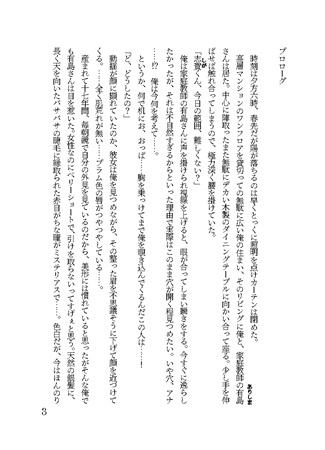 プロローグ
時刻は夕方六時、春先だが陽が落ちるのは早くとっくに照明を点けカーテンは閉めた。
高層マンションのワンフロアを貸切っての無駄に広い俺の住まい、そのリビングに俺と、家庭教師の有島
ありしま
さんは居た。中心に陣取ったまた無駄にデカい木製のダイニングテーブルに向かい合って座る。少し手を伸
ばせば触れ合ってしまうので、極力深く腰を掛けていた。
「志賀くん、今日の範囲、難しくない?」
しが
俺は家庭教師の有島さんに声を掛けられ視線を上げると、眼が合ってしまい瞬きをする。今すぐに逸らし
たかったが、それは不自然すぎるからといった理由で実際はこのまま穴が開く程見つめたい。いや穴、アナ
……!? 俺は今何を考えて……。
というか、何で机にお、おっぱ……胸を乗っけてまで俺を覗き込んでくるんだこの人は……!
「ど、どうしたの?」
動揺が顔に現れていたのか、彼女は俺を見つめながら、その整った眉を不思議そうに下げて顔を近づけて
くる。……全く肌荒れが無い……プラム色の唇がつやつやしている……。
産まれて十七年間、毎朝鏡で自分の外見を見ているのだから、美形には慣れていると思ったがそんな俺で
も有島さんは目を惹いた。女性なのにベリーショートで、引けを取らないってすげぇと思う。天然の銀髪に、
長く天を向いたバサバサの睫毛に縁取られた赤目がちな瞳がミステリアスで……。色白だが、今はほんのり
3